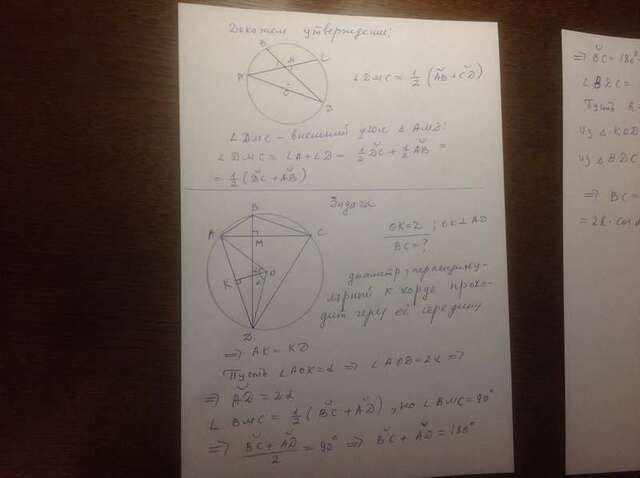 Докажем утверждение:
B
L
A
M
O
D
∠DMC = 1/2 (A͝B + C͝D)
∠DMC – внешний угол △ AMD:
∠DMC = ∠A + ∠D = 1/2 D͝C + 1/2 A͝B =
= 1/2 (D͝C + A͝B)
Задача
B
A
M
C
K
O
D
OK = 2; OK ⊥ AD
BC = ?
диаметр, перпендику-
лярный к хорде прохо-
дит через её середину
⇒ AK = KD
Пусть ∠AOK = α ⇒ ∠AOD = 2α ⇒
⇒ A͝D = 2α
∠ BMC = 1/2 (B͝C + A͝D), но ∠BMC = 90°
⇒ (B͝C + A͝D)/2 = 90° ⇒ B͝C + A͝D = 180°
⇒ B͝C = 180°
∠BDC =
Пусть
из △ KOD
из △ BDC
⇒ BC =
= 2R · cos